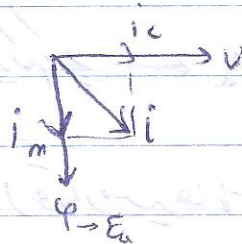 i c
V
i m
i
φ → E a